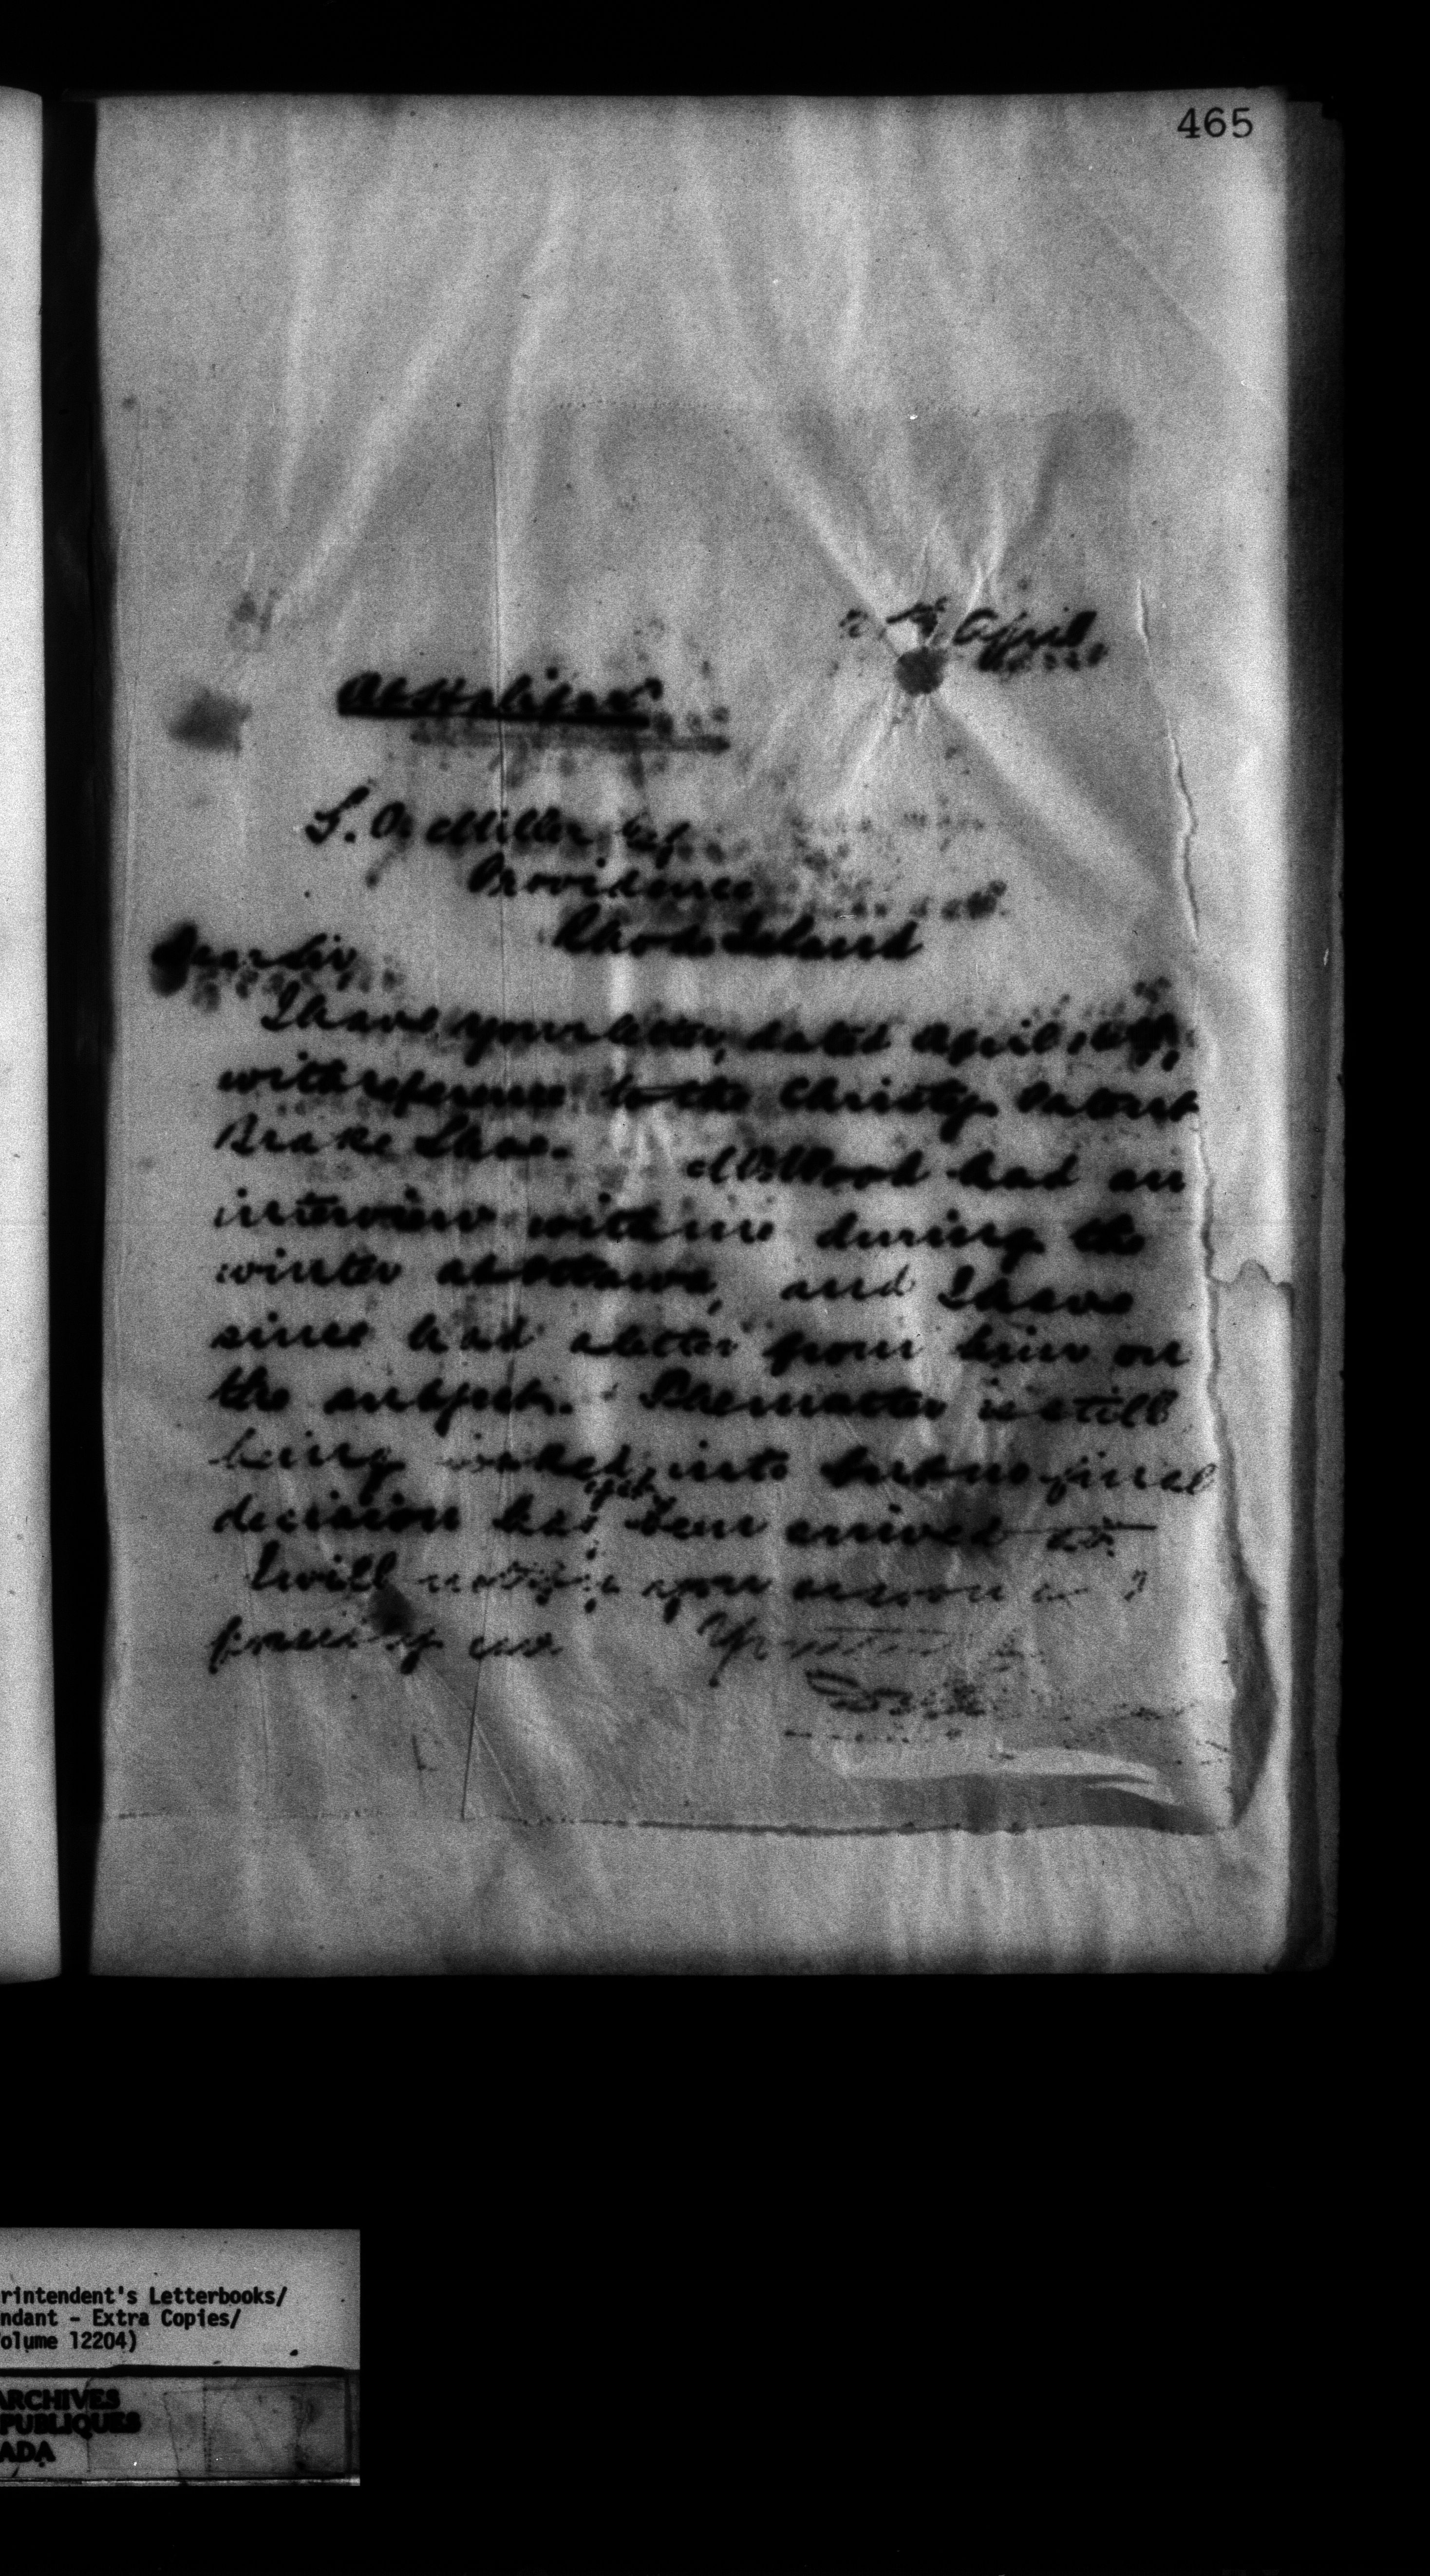 465
April
At Halifax
S. A. Miller Esq
Providence
Rhode Island
Dear Sir,
I have your letter, dated April 16th,
with reference to the Christy Patent
Brake Shoe. Mr. Wood had an
interview with me during the
winter at Ottawa, and I have
since had a letter from him on
the subject. The matter is still
being looked into but no final
decision has yet been arrived at.
I will notify you as soon as
rintendent's Letterbooks/
ndant - Extra Copies/
olume 12204)
ARCHIVES
PUBLIQUES
ADA